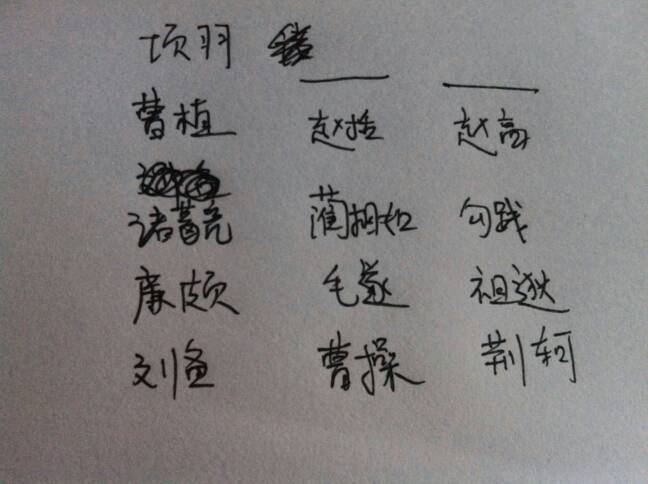 项羽
曹植 赵括 赵高
诸葛亮 蔺相如 勾践
廉颇 毛遂 祖逖
刘备 曹操 荆轲